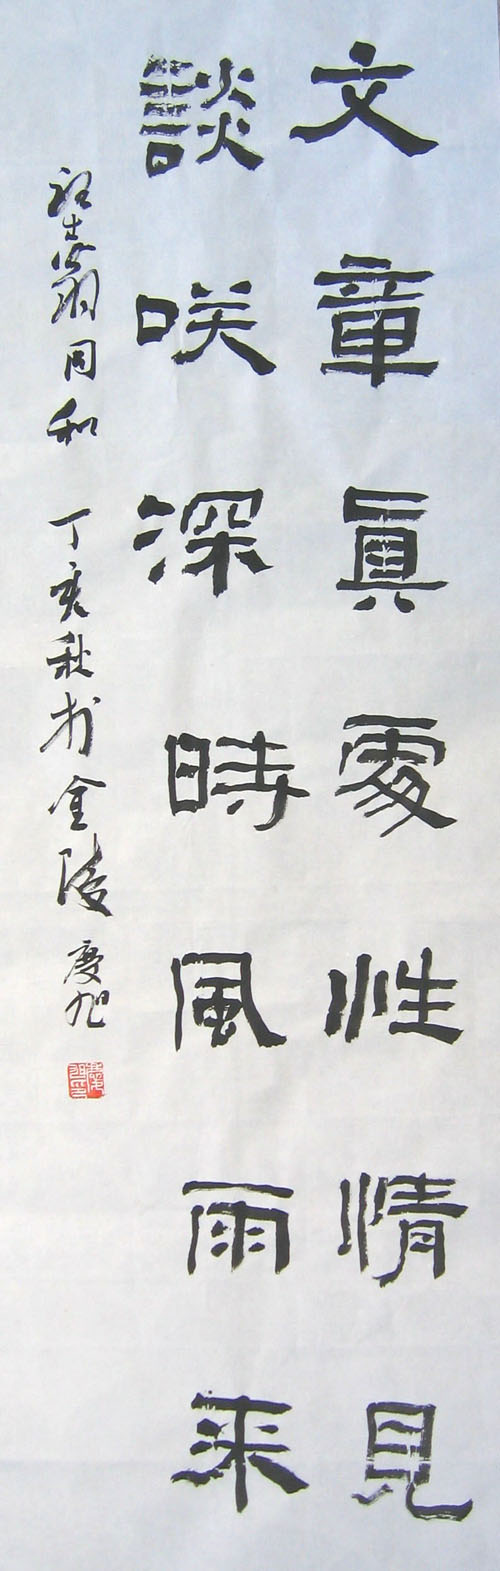 文章真處性情見
談咲深時風雨来
翁同和 丁亥秋於金陵 慶旭